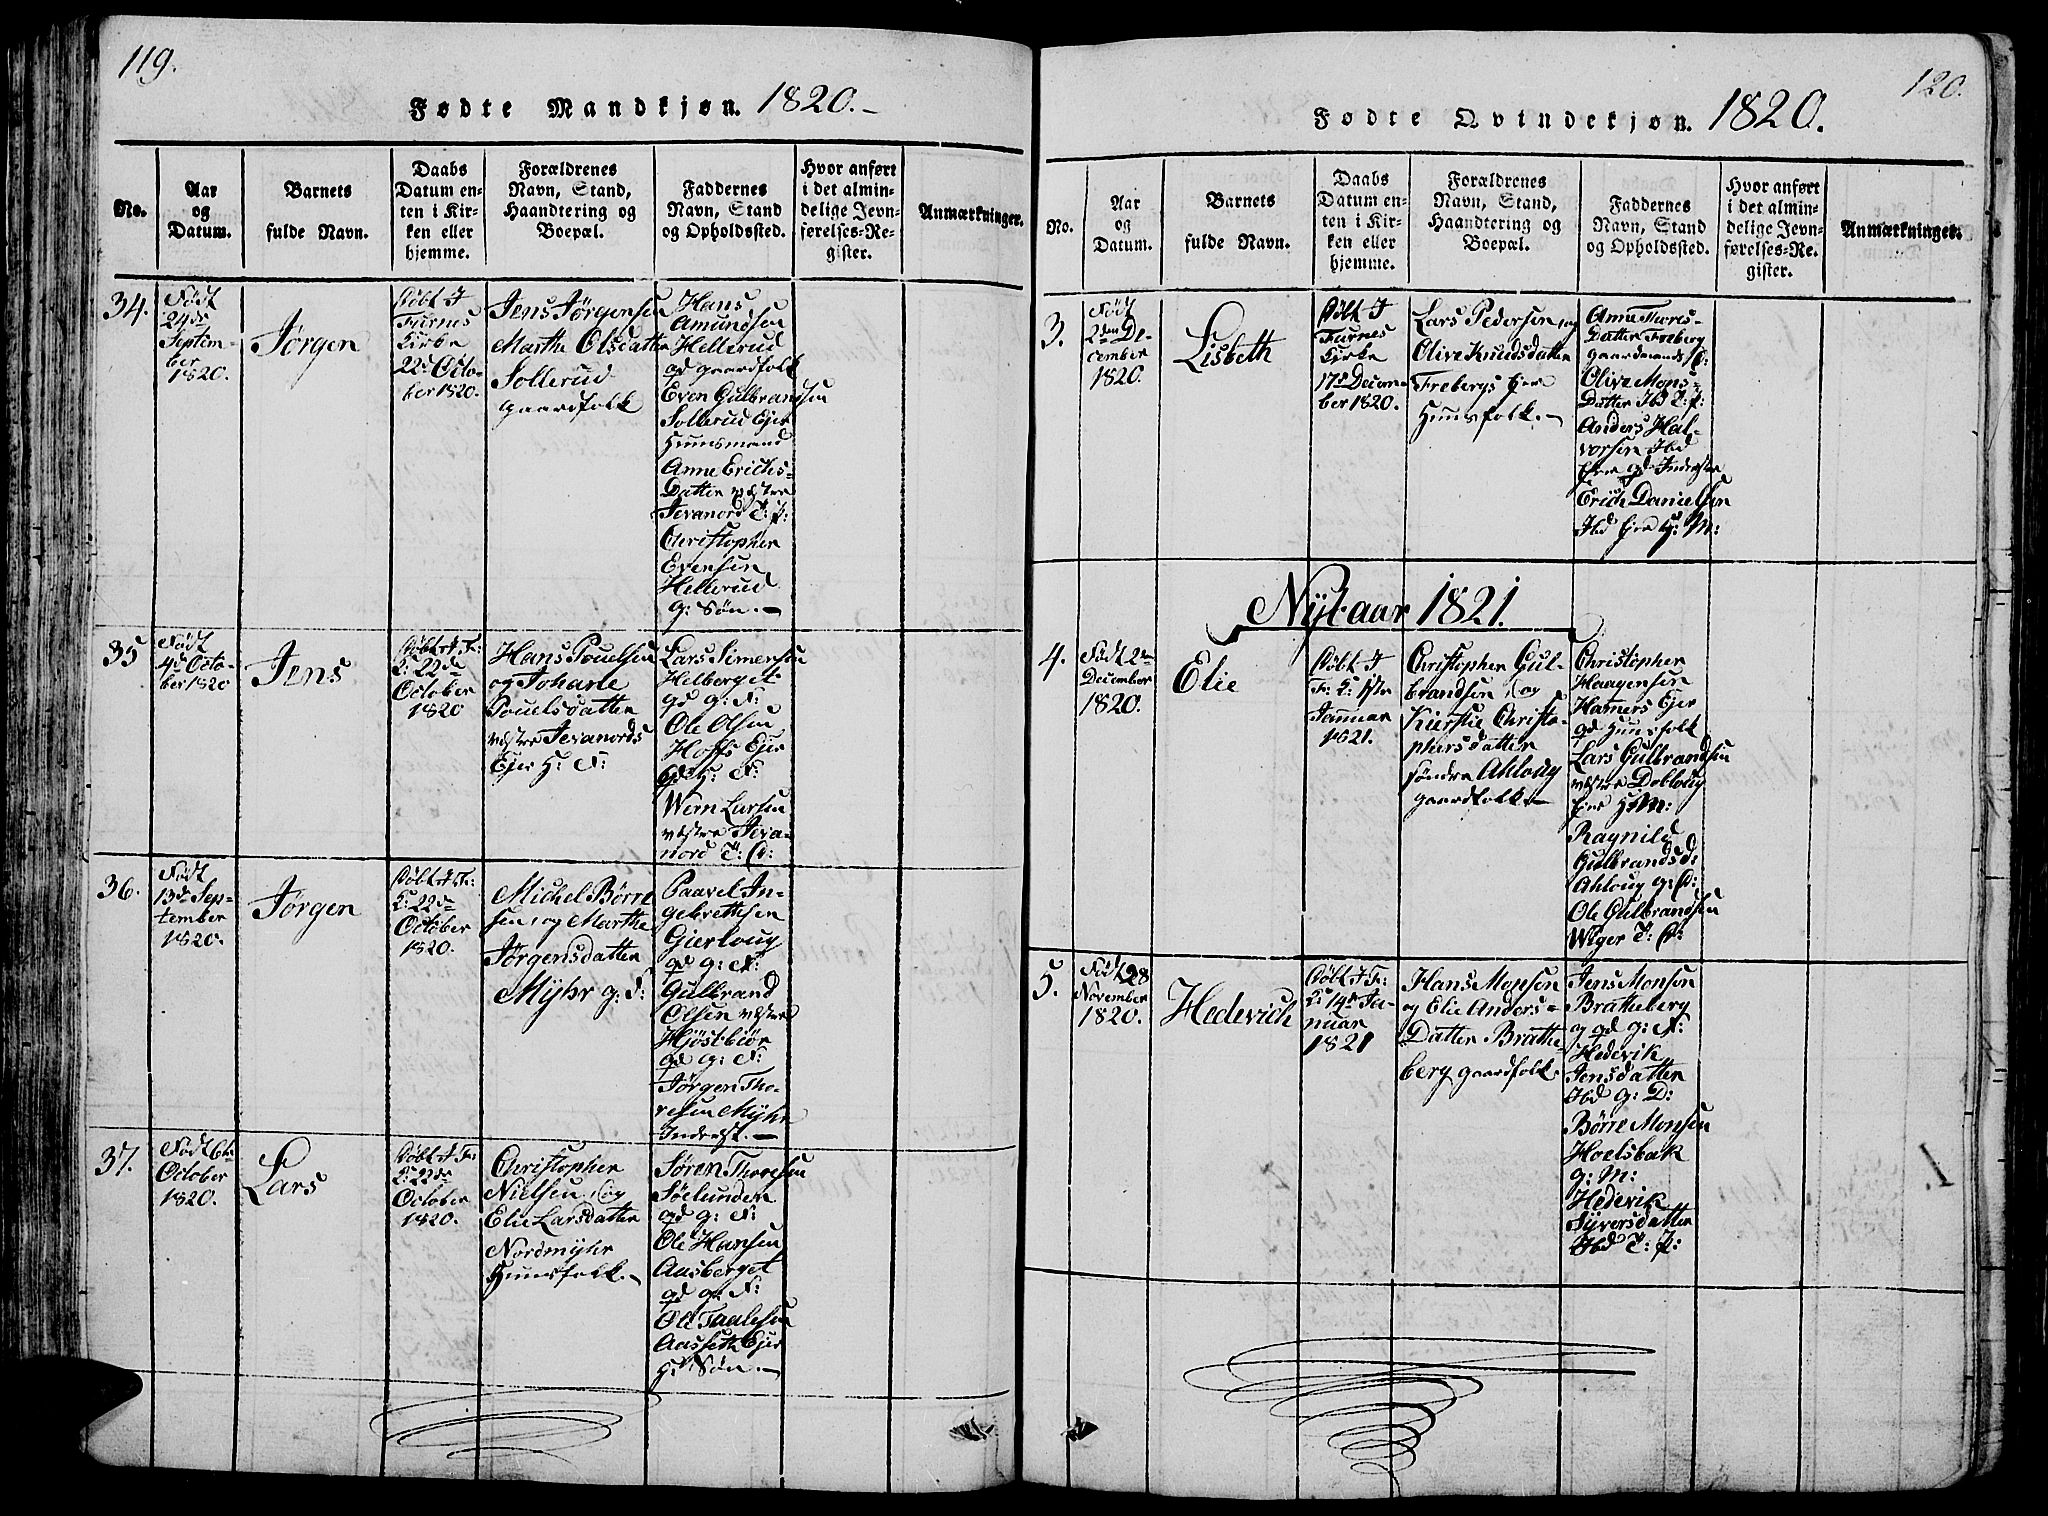 119.
Fødte Mandkjøn. 1820.-
No.
Aar
og
Datum.
Barnets
fulde Navn.
Daabs
Datum en-
ten i Kir-
ken eller
hjemme.
Forældrenes
Navn, Stand,
Haandtering og
Boepæl.
Faddernes
Navn, Stand
og Opholdssted.
Hvor anført
i det almin-
delige Jevn-
førelses-Re-
gister.
Anmærkninger.
34.
Født
24de
Septem-
ber
1820.
Jørgen
Døbt I
Furnes
Kirke
22de Octo-
ber 1820.
Jens Jørgensen
Marthe Olsdatter
Sollerud
gaardfolk
Hans
Amundsen
Hellerud
gd gaardfolk
Even Gulbrandsen
Sollerud Ejer
Huusmand
Anne Erichs-
Datter vestre
Jevanord T: P:
Christopher
Evensen
Hellerud
G: Søn.-
35
Født
4de Octo-
ber 1820
Jens
Døbt I F:
K: 22de
October
1820
Hans Pouelsen
og Joharle
Pouelsdatter
vestre Jevanords
Ejer H: F:
Lars Simensen
Helberget
gd g: F:
Ole Olsen
Hoffs Ejer
gd H: F:
Wern Larsen
vestre Jeva-
nord T: D:
36.
Født
13de Sep-
tember
1820.
Jørgen
Døbt I F:
K: 22de
October
1820.
Michel Børre
sen, og Marthe
Jørgensdatter
Mÿhr g: F:
Paavel In-
gebrettsen
Gjerloug
gd g: F:
Gulbrand
Olsen vestre
Hjøstbiør
gd g: F:
Jørgen Tho-
resen Mÿhr
Inderst.-
37.
Født 6te
October
1820.
Lars
Døbt I F:
K: 22de
October
1820.
Christopher
Nielsen, og
Elie Larsdatter
Nordmÿhr
Huusfolk.-
Søren Thoresen
Søelunden
gd g: F:
Ole Hansen
Aasberget
gd g: F:
Ole Taalesen
Aasseth Ejer
H: Søn.-
120.
Fødte Qvindekjøn. 1820.
No.
Aar
og
Datum.
Barnets
fulde Navn.
Daabs
Datum en-
ten i Kir-
ken eller
hjemme.
Forældrenes
Navn, Stand,
Haandtering og
Boepæl.
Faddernes
Navn, Stand
og Opholdssted.
Hvor anført
i det almin-
delige Jevn-
førelses-Re-
gister.
Anmærkninger.
3.
Født
2den De-
cember
1820.
Lisbeth
Døbt I
Furnes
Kirke
17de Decem-
ber 1820.
Lars Pedersen, og
Olive Knudsdatter
Frebergs Ejer
Huusfolk.-
Anne Thores-
Datter Freberg
gaardmands K:
Olive Mons-
Datter Ibd T: P:
Anders Hal-
vorsen Ibd
Ejer gd Inderste
Erich Danielsen
Ibd Ejer H: M:
Nÿtaar 1821.
4.
Født 2den
December
1820.
Elie
Døbt I
F: K: 1ste
Januar
1821.
Christopher Gul-
brandsen, og
Kierstie Christo-
phersdatter
søndre Ahloug
gaardfolk.-
Christopher
Haagensen
Hamers Ejer
gd Huusfolk
Lars Gulbrandsen
vestre Dobloug
Ejer H: M:
Ragnild
Gulbrandsd:
Ahloug g: D:
Ole Gulbrandsen
Wiger T: D:
5.
Født 28
November
1820.
Hedevich
Døbt I F:
K: 14de Ja-
nuar
1821
Hans Monsen
og Elie Anders-
Datter Brathe-
berg gaardfolk.
Jens Monsen
Bratheberg
og gd g: F:
Hedevik
Jensdatter
Ibd g: D:
Børre Monsen
Hoelsbak
g: M:
Hedevik
Syversdatter
Ibd T: P:
1.